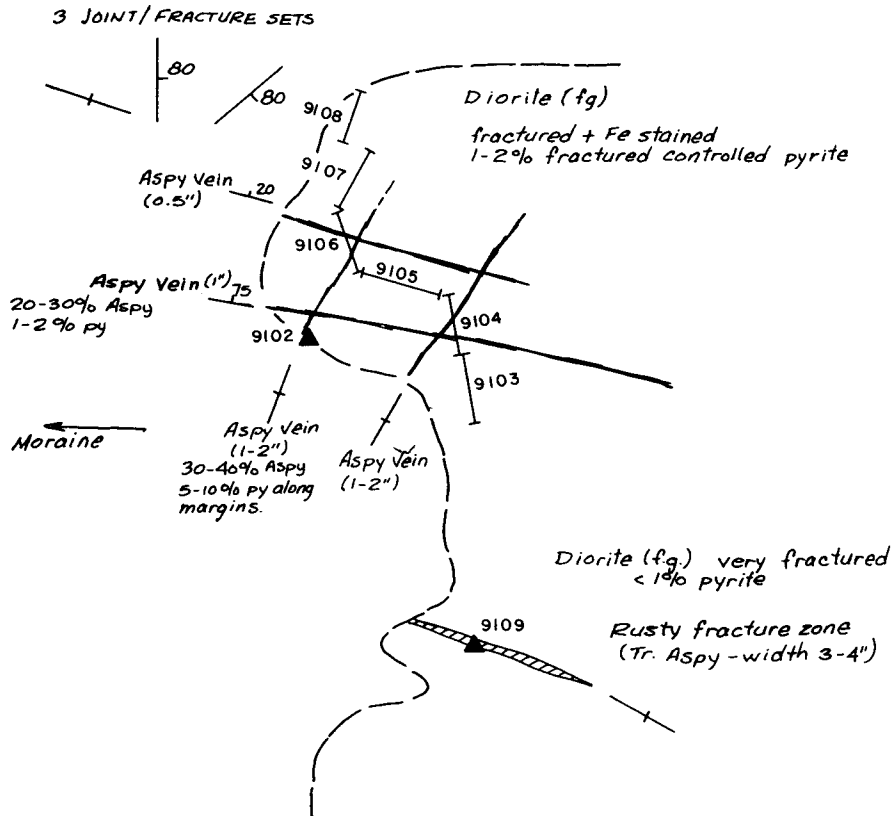 3 JOINT/FRACTURE SETS
80
80
9108
Diorite (fg)
fractured + Fe stained
1-2% fractured controlled pyrite
9107
Aspy vein
(0.5")
20
9106
9105
Aspy Vein (1") 75
20-30% Aspy
1-2% py
9104
9102
9103
Moraine
Aspy Vein
(1-2")
30-40% Aspy
5-10% py along
margins.
Aspy Vein
(1-2")
Diorite (f.g.) very fractured
< 1% pyrite
9109
Rusty fracture zone
(Tr. Aspy - width 3-4")